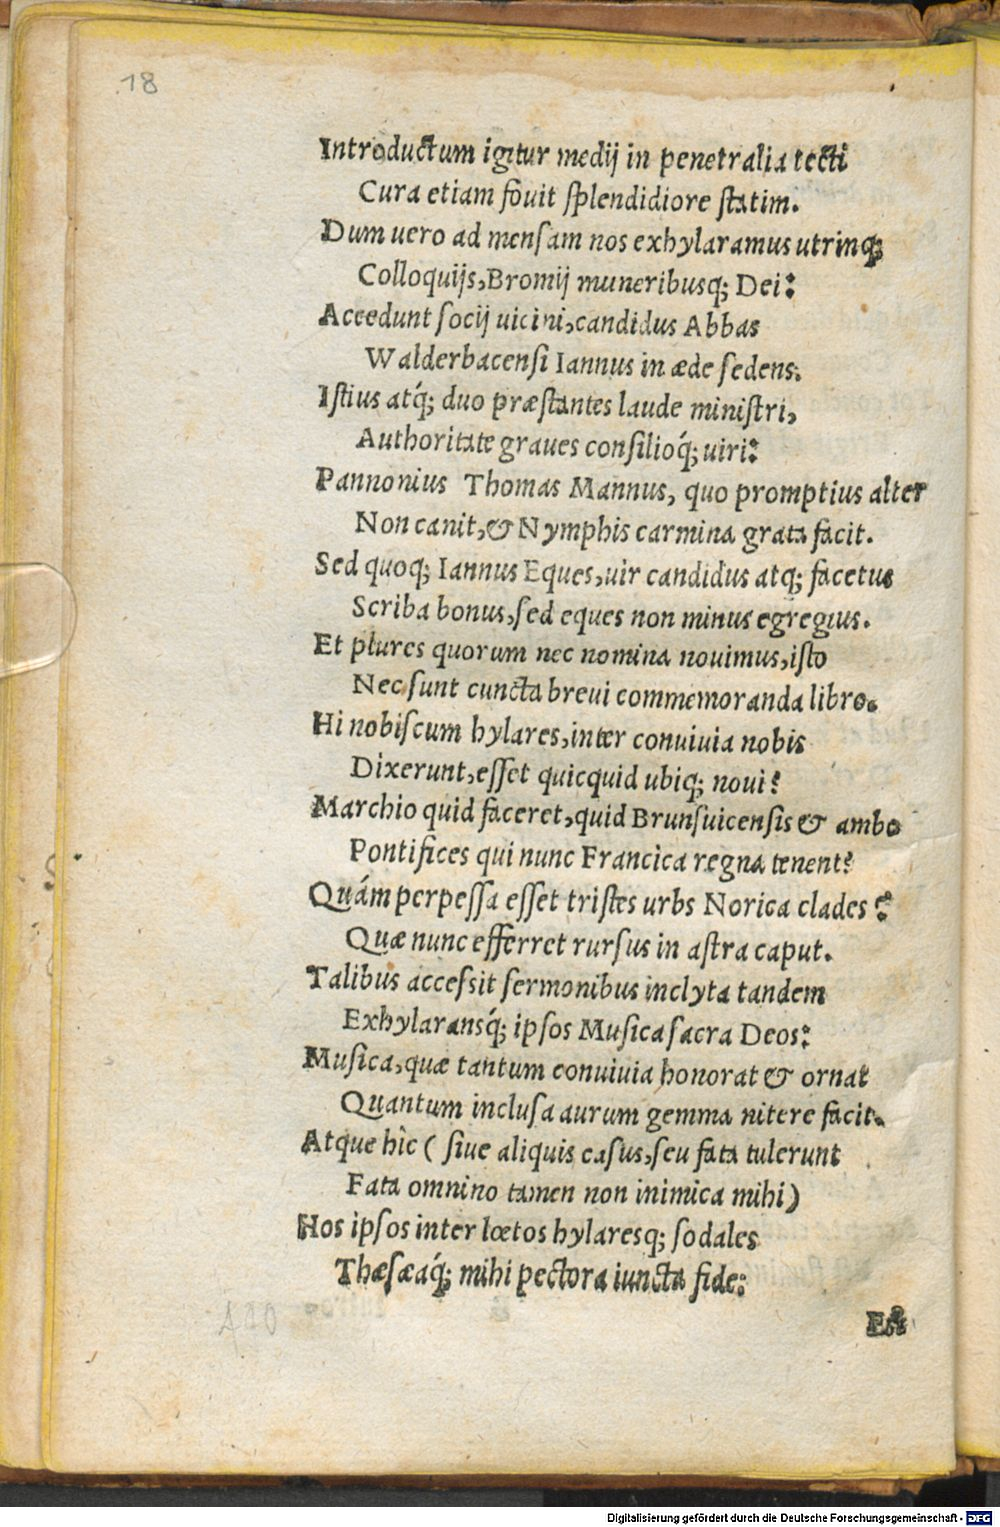 18
Introductum igitur medij in penetralia tecti
Cura etiam fouit splendidiore statim.
Dum uero ad mensam nos exhylaramus utrinq;
Colloquijs, Bromij muneribusq; Dei:
Accedunt socij uicini, candidus Abbas
Walderbacensi Iannus in æde sedens.
Istius atq́; duo præstantes laude ministri,
Authoritate graues consilioq́; uiri:
Pannonius Thomas Mannus, quo promptius alter
Non canit, & Nymphis carmina grata facit.
Sed quoq; Iannus Eques, uir candidus atq; facetus
Scriba bonus, sed eques non minus egregius.
Et plures quorum nec nomina nouimus, isto
Nec sunt cuncta breui commemoranda libro.
Hi nobiscum hylares, inter conuiuia nobis
Dixerunt, esset quicquid ubiq; noui?
Marchio quid faceret, quid Brunsuicensis & ambo
Pontifices qui nunc Francica regna tenent?
Quám perpessa esset tristes urbs Norica clades?
Quæ nunc efferret rursus in astra caput.
Talibus accessit sermonibus inclyta tandem
Exhylaransq́; ipsos Musica sacra Deos:
Musica, quæ tantum conuiuia honorat & ornat
Quantum inclusa aurum gemma nitere facit.
Atque hìc ( siue aliquis casus, seu fata tulerunt
Fata omnino tamen non inimica mihi)
Hos ipsos inter lœtos hylaresq; sodales
Thæsæaq́; mihi pectora iuncta fide:
Digitalisierung gefördert durch die Deutsche Forschungsgemeinschaft - DFG